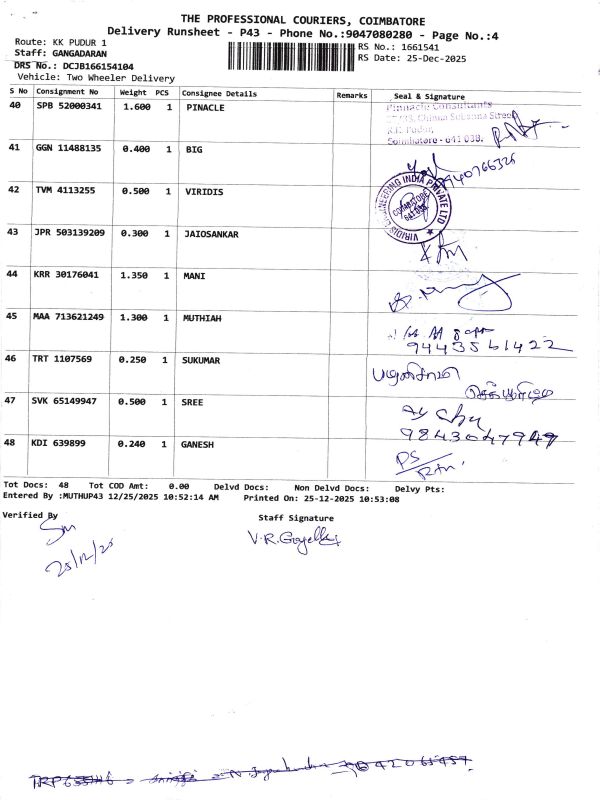 THE PROFESSIONAL COURIERS, COIMBATORE
Delivery Runsheet - P43 - Phone No.:9047080280 - Page No.:4
Route: KK PUDUR 1
RS No.: 1661541
Staff: GANGADARAN
RS Date: 25-Dec-2025
DRS No.: DCJB166154104
Vehicle: Two Wheeler Delivery
S No Consignment No Weight PCS Consignee Details Remarks Seal & Signature
40 SPB 52000341 1.600 1 PINACLE
Pinnacle Consultants
Street
K.K. Pudur,
Coimbatore - 641 038.
41 GGN 11488135 0.400 1 BIG
9940766326
42 TVM 4113255 0.500 1 VIRIDIS
VIRIDIS ENGINEERING INDIA PRIVATE LTD
COIMBATORE
43 JPR 503139209 0.300 1 JAIOSANKAR
44 KRR 30176041 1.350 1 MANI
45 MAA 713621249 1.300 1 MUTHIAH
9443561422
46 TRT 1107569 0.250 1 SUKUMAR
பழனிசாமி
47 SVK 65149947 0.500 1 SREE
9843047949
48 KDI 639899 0.240 1 GANESH
Tot Docs: 48 Tot COD Amt: 0.00 Delvd Docs: Non Delvd Docs: Delvy Pts:
Entered By :MUTHUP43 12/25/2025 10:52:14 AM Printed On: 25-12-2025 10:53:08
Verified By
Staff Signature
25/12/25